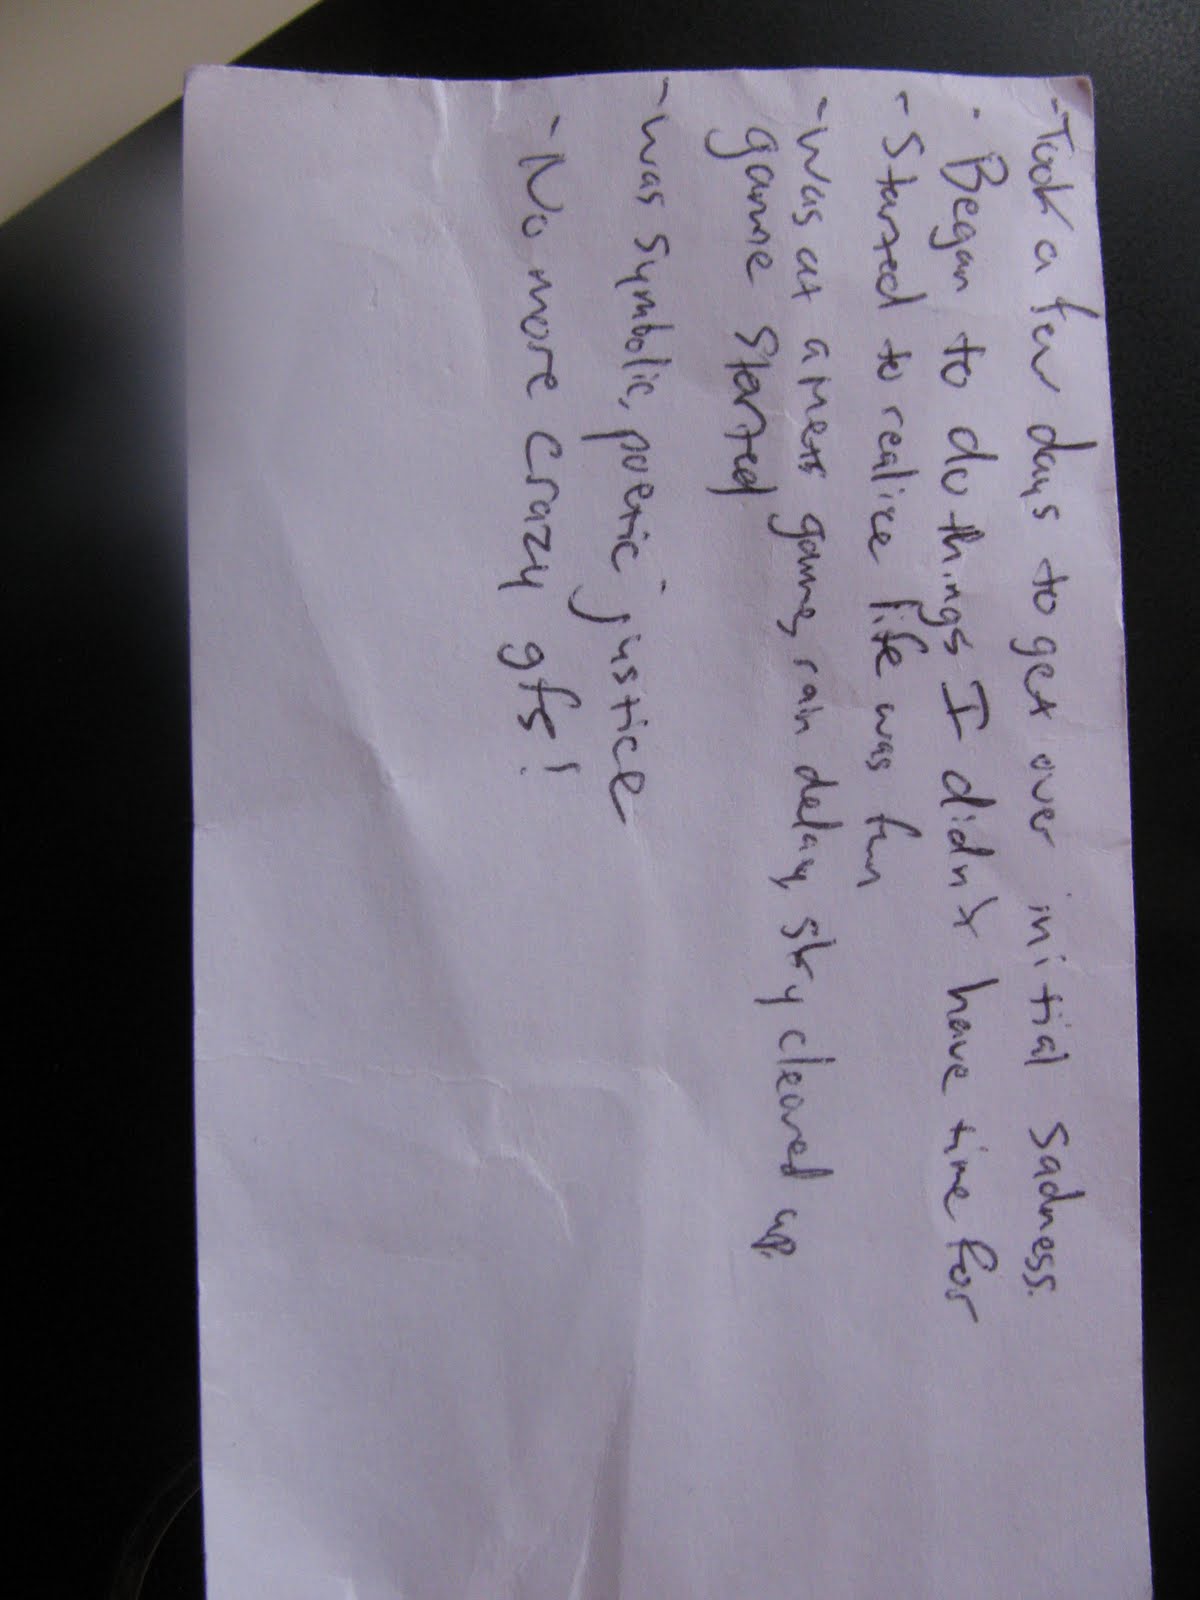 - Took a few days to get over initial sadness.
- Began to do things I didn't have time for
- Started to realize life was fun
- Was at a mets game, rain delay, sky cleared up,
game started
- Was symbolic, poetic justice
- No more crazy gfs!